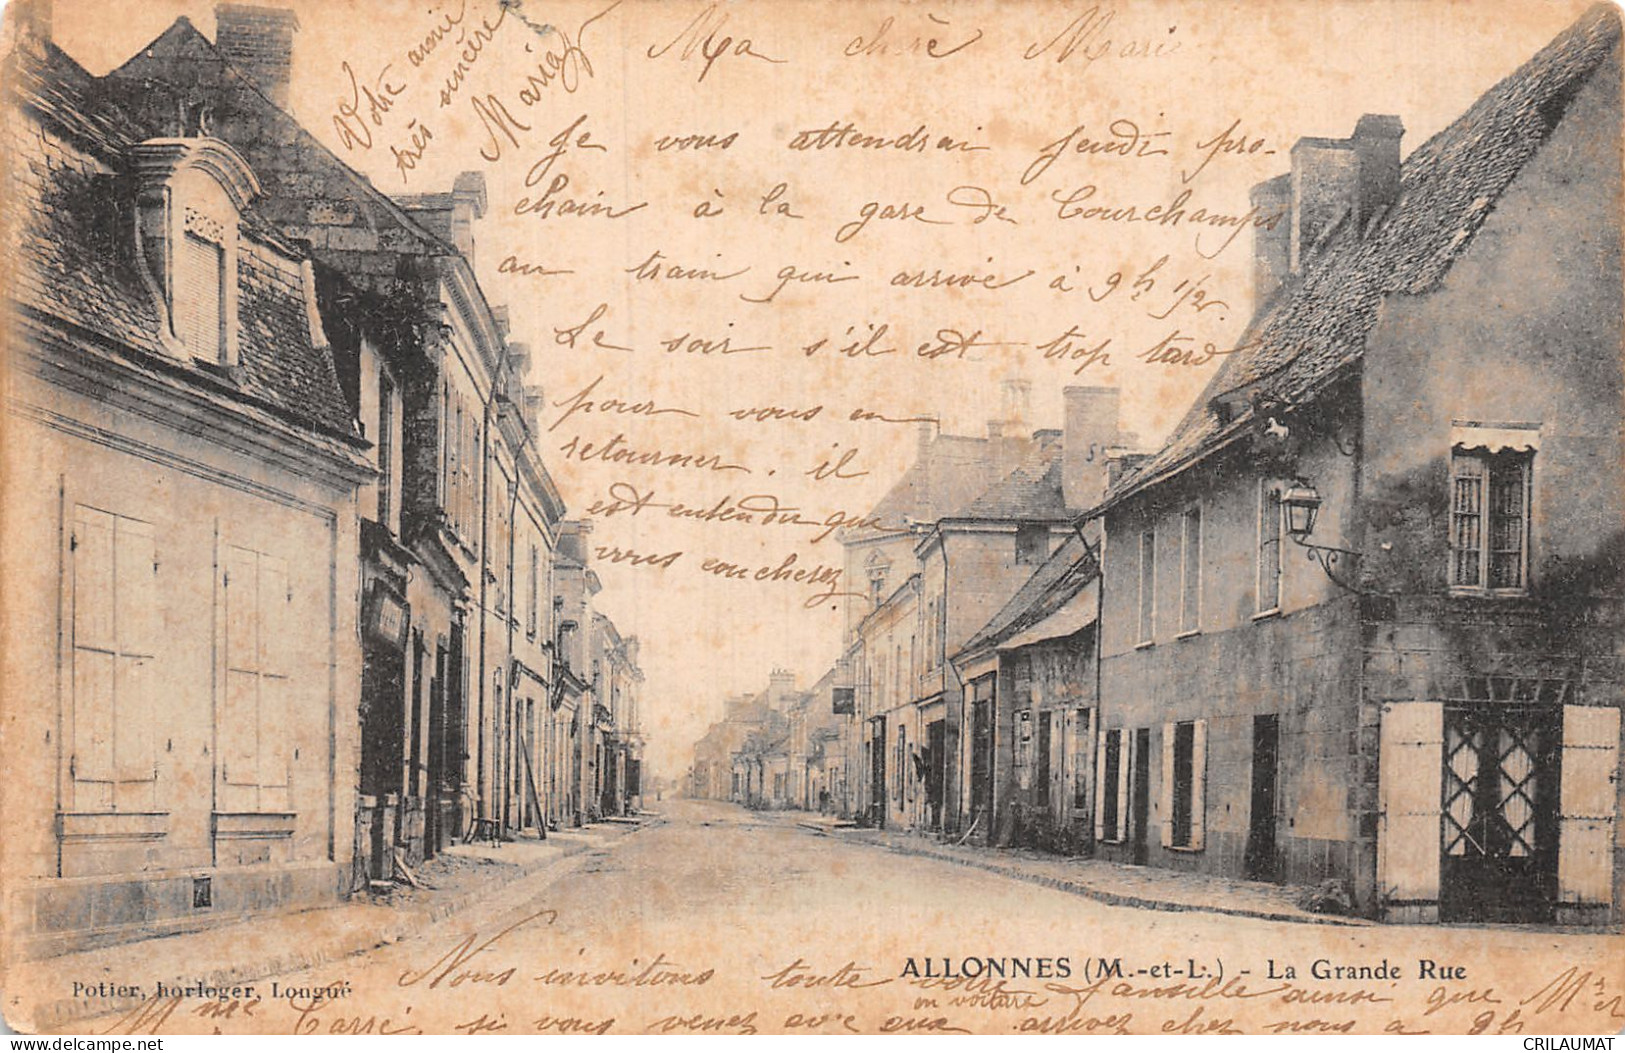 Ma chère Marie
Je vous attendrai jeudi pro-
chain à la gare de Courchamps
au train qui arrive à 9h 1/2.
Le soir s'il est trop tard
pour vous en
retourner. il
est entendu que
vous coucherez
Votre amie
très sincère
Maria
ALLONNES (M.-et-L.) - La Grande Rue
Potier, horloger, Longué
Nous invitons toute votre famille ainsi que Mr et
en voiture
Mme Carré, si vous venez avec eux arrivez chez nous à 9h
CRILAUMAT